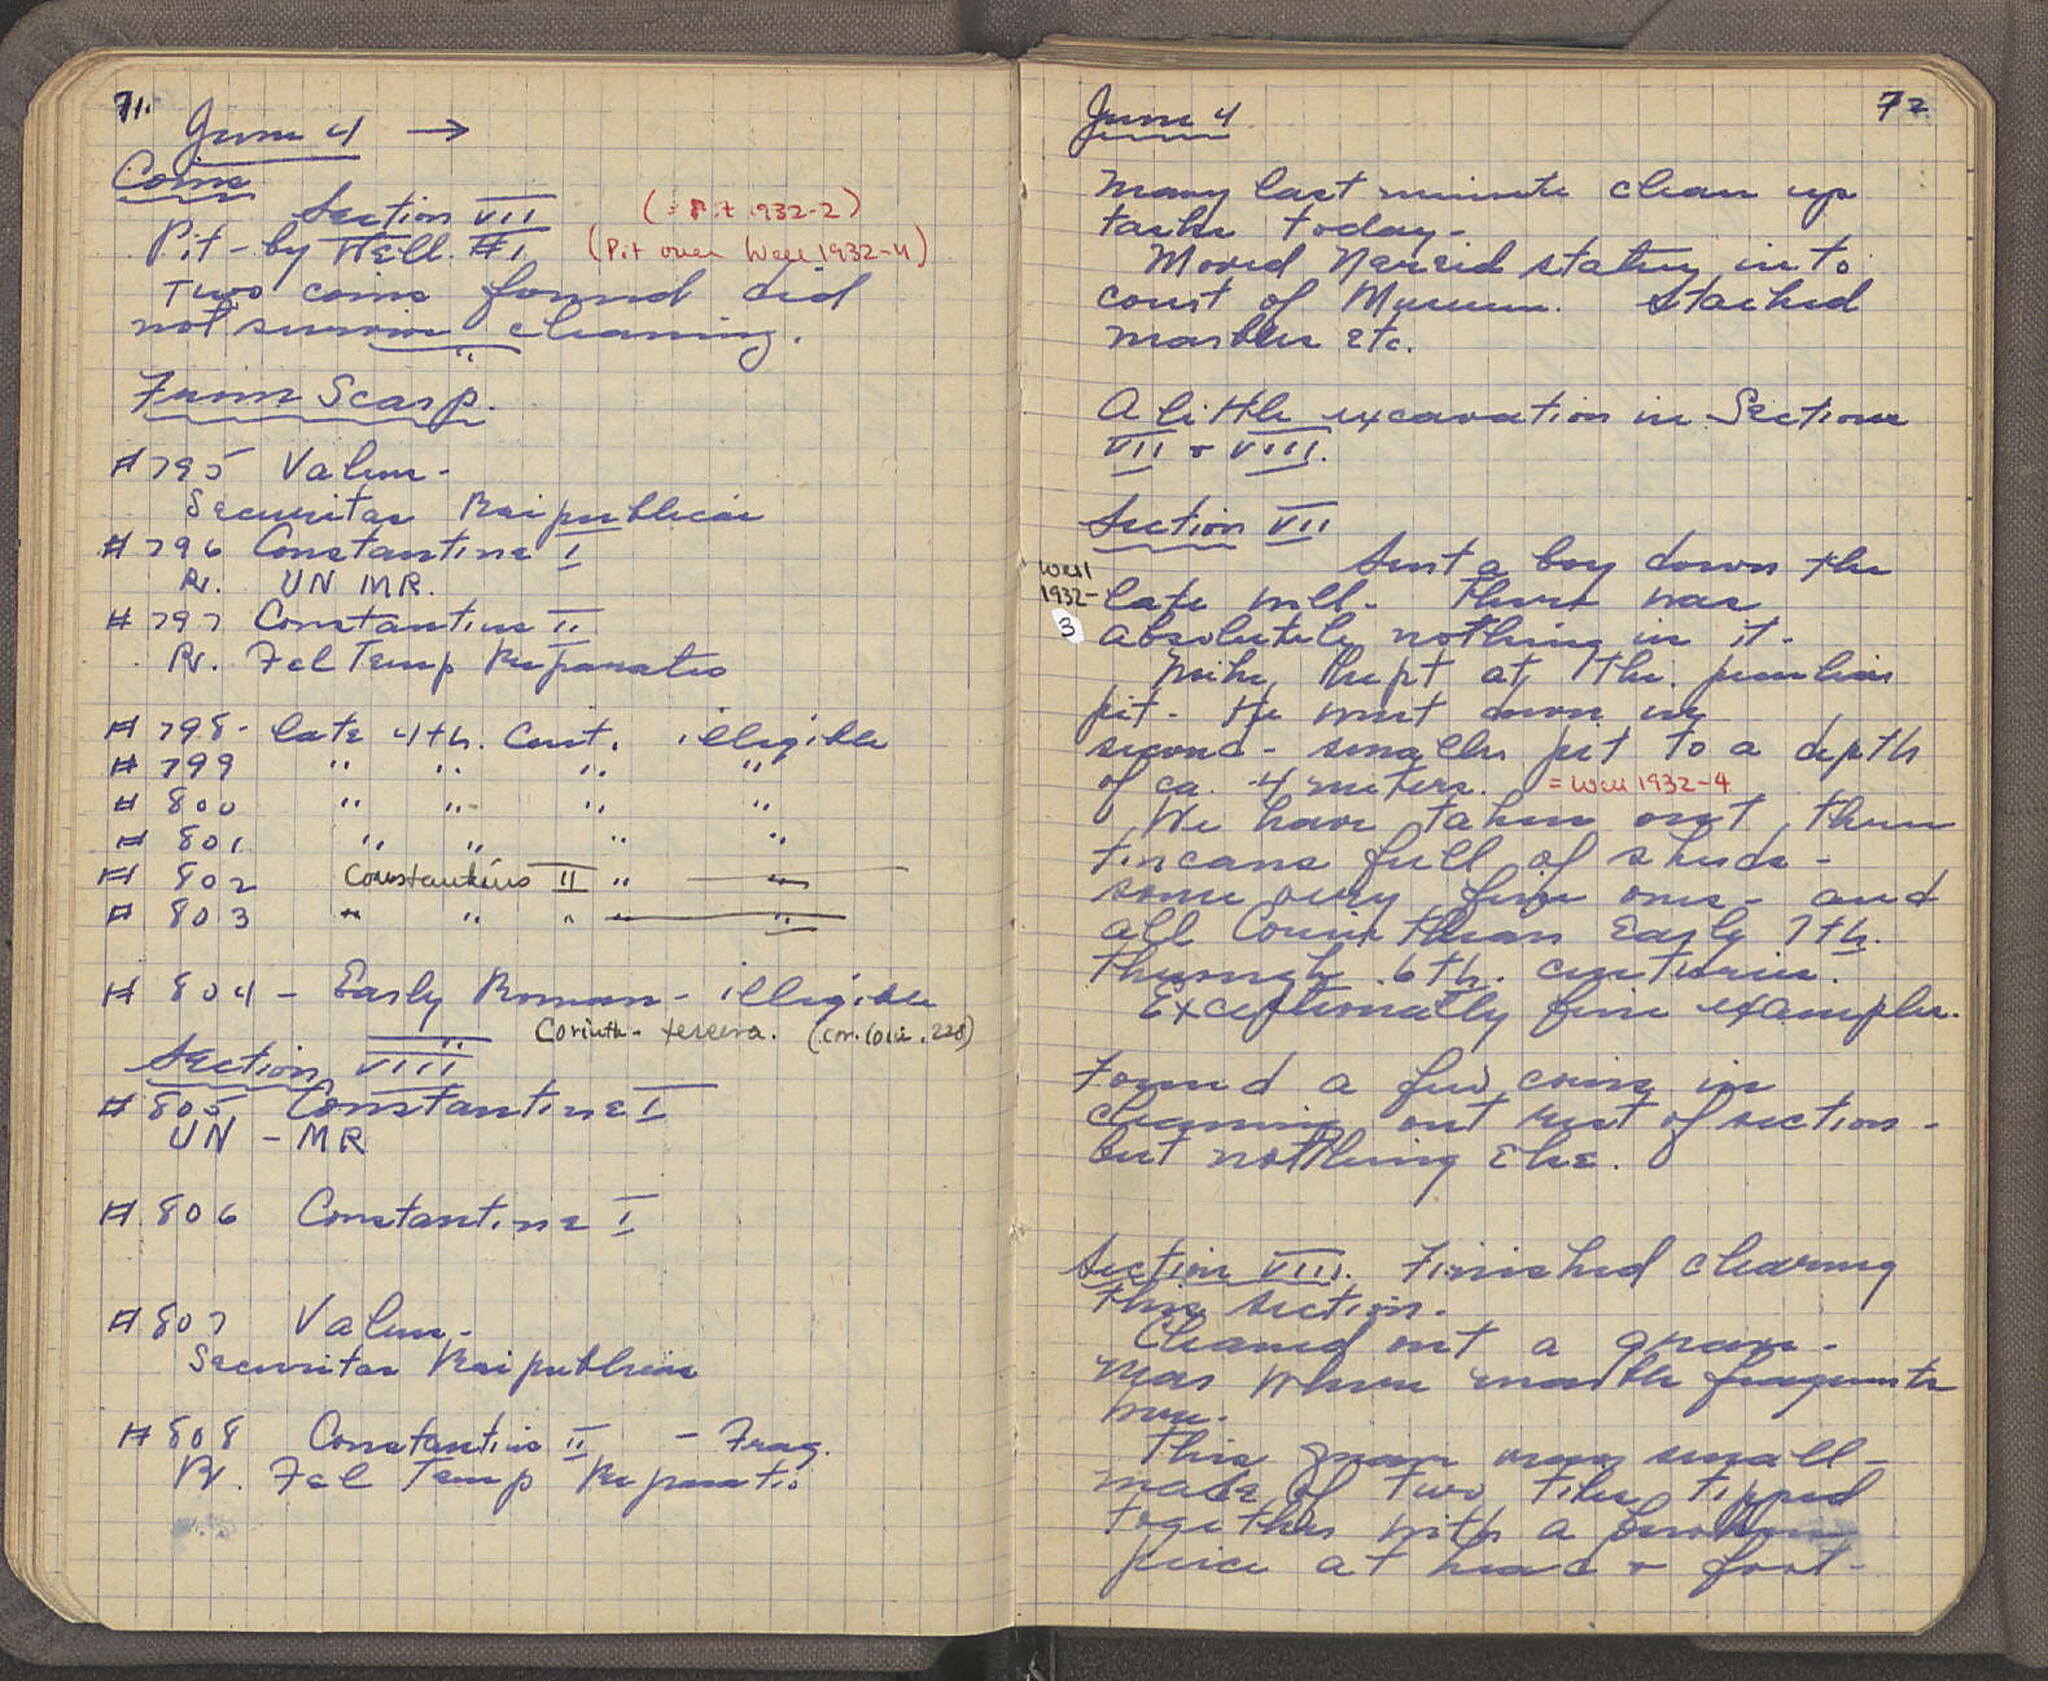 71.
June 4 →
Coins
Section VII (= Pit 1932-2)
Pit - by Hell. #1 (Pit over Well 1932-4)
Two coins found did
not survive cleaning.
From Scarp.
# 795 Valens -
Securitas Reipublicae
# 796 Constantine I
Rv. UN MR.
# 797 Constantius II
Rv. Fel Temp Reparatio
# 798 - late 4th. Cent. illegible
# 799 " " " "
# 800 " " " "
# 801 " " " "
# 802 Constantius II " "
# 803 " " " " "
# 804 - Early Roman - illegible
Corinth - tessera. (Cor. Coll. 228)
Section VIII
# 805 Constantine I
UN - MR
# 806 Constantine I
# 807 Valens -
Securitas Reipublicae
# 808 Constantius II - Frag.
Rv. Fel Temp Reparatio
72
June 4
Many last minute clean up
tasks today -
Moved Nereid statue into
court of Museum. Stacked
marbles etc.
A little excavation in Sections
VII + VIII.
Section VII
Sent a boy down the
Well
1932-
3
late well. There was
absolutely nothing in it.
Mike kept at the peculiar
pit. He went down in
second - smaller pit to a depth
of ca. 4 meters. = Well 1932-4
We have taken out three
tin cans full of sherds -
some very fine ones - and
all Corinthian Early 7th.
through 6th. centuries.
Exceptionally fine examples.
Found a few coins in
cleaning out rest of section -
but nothing else.
Section VIII. Finished clearing
this section.
Cleaned out a grave -
near where marble fragments
were.
This grave very small -
made of two tiles tipped
together with a broken
piece at head + foot -